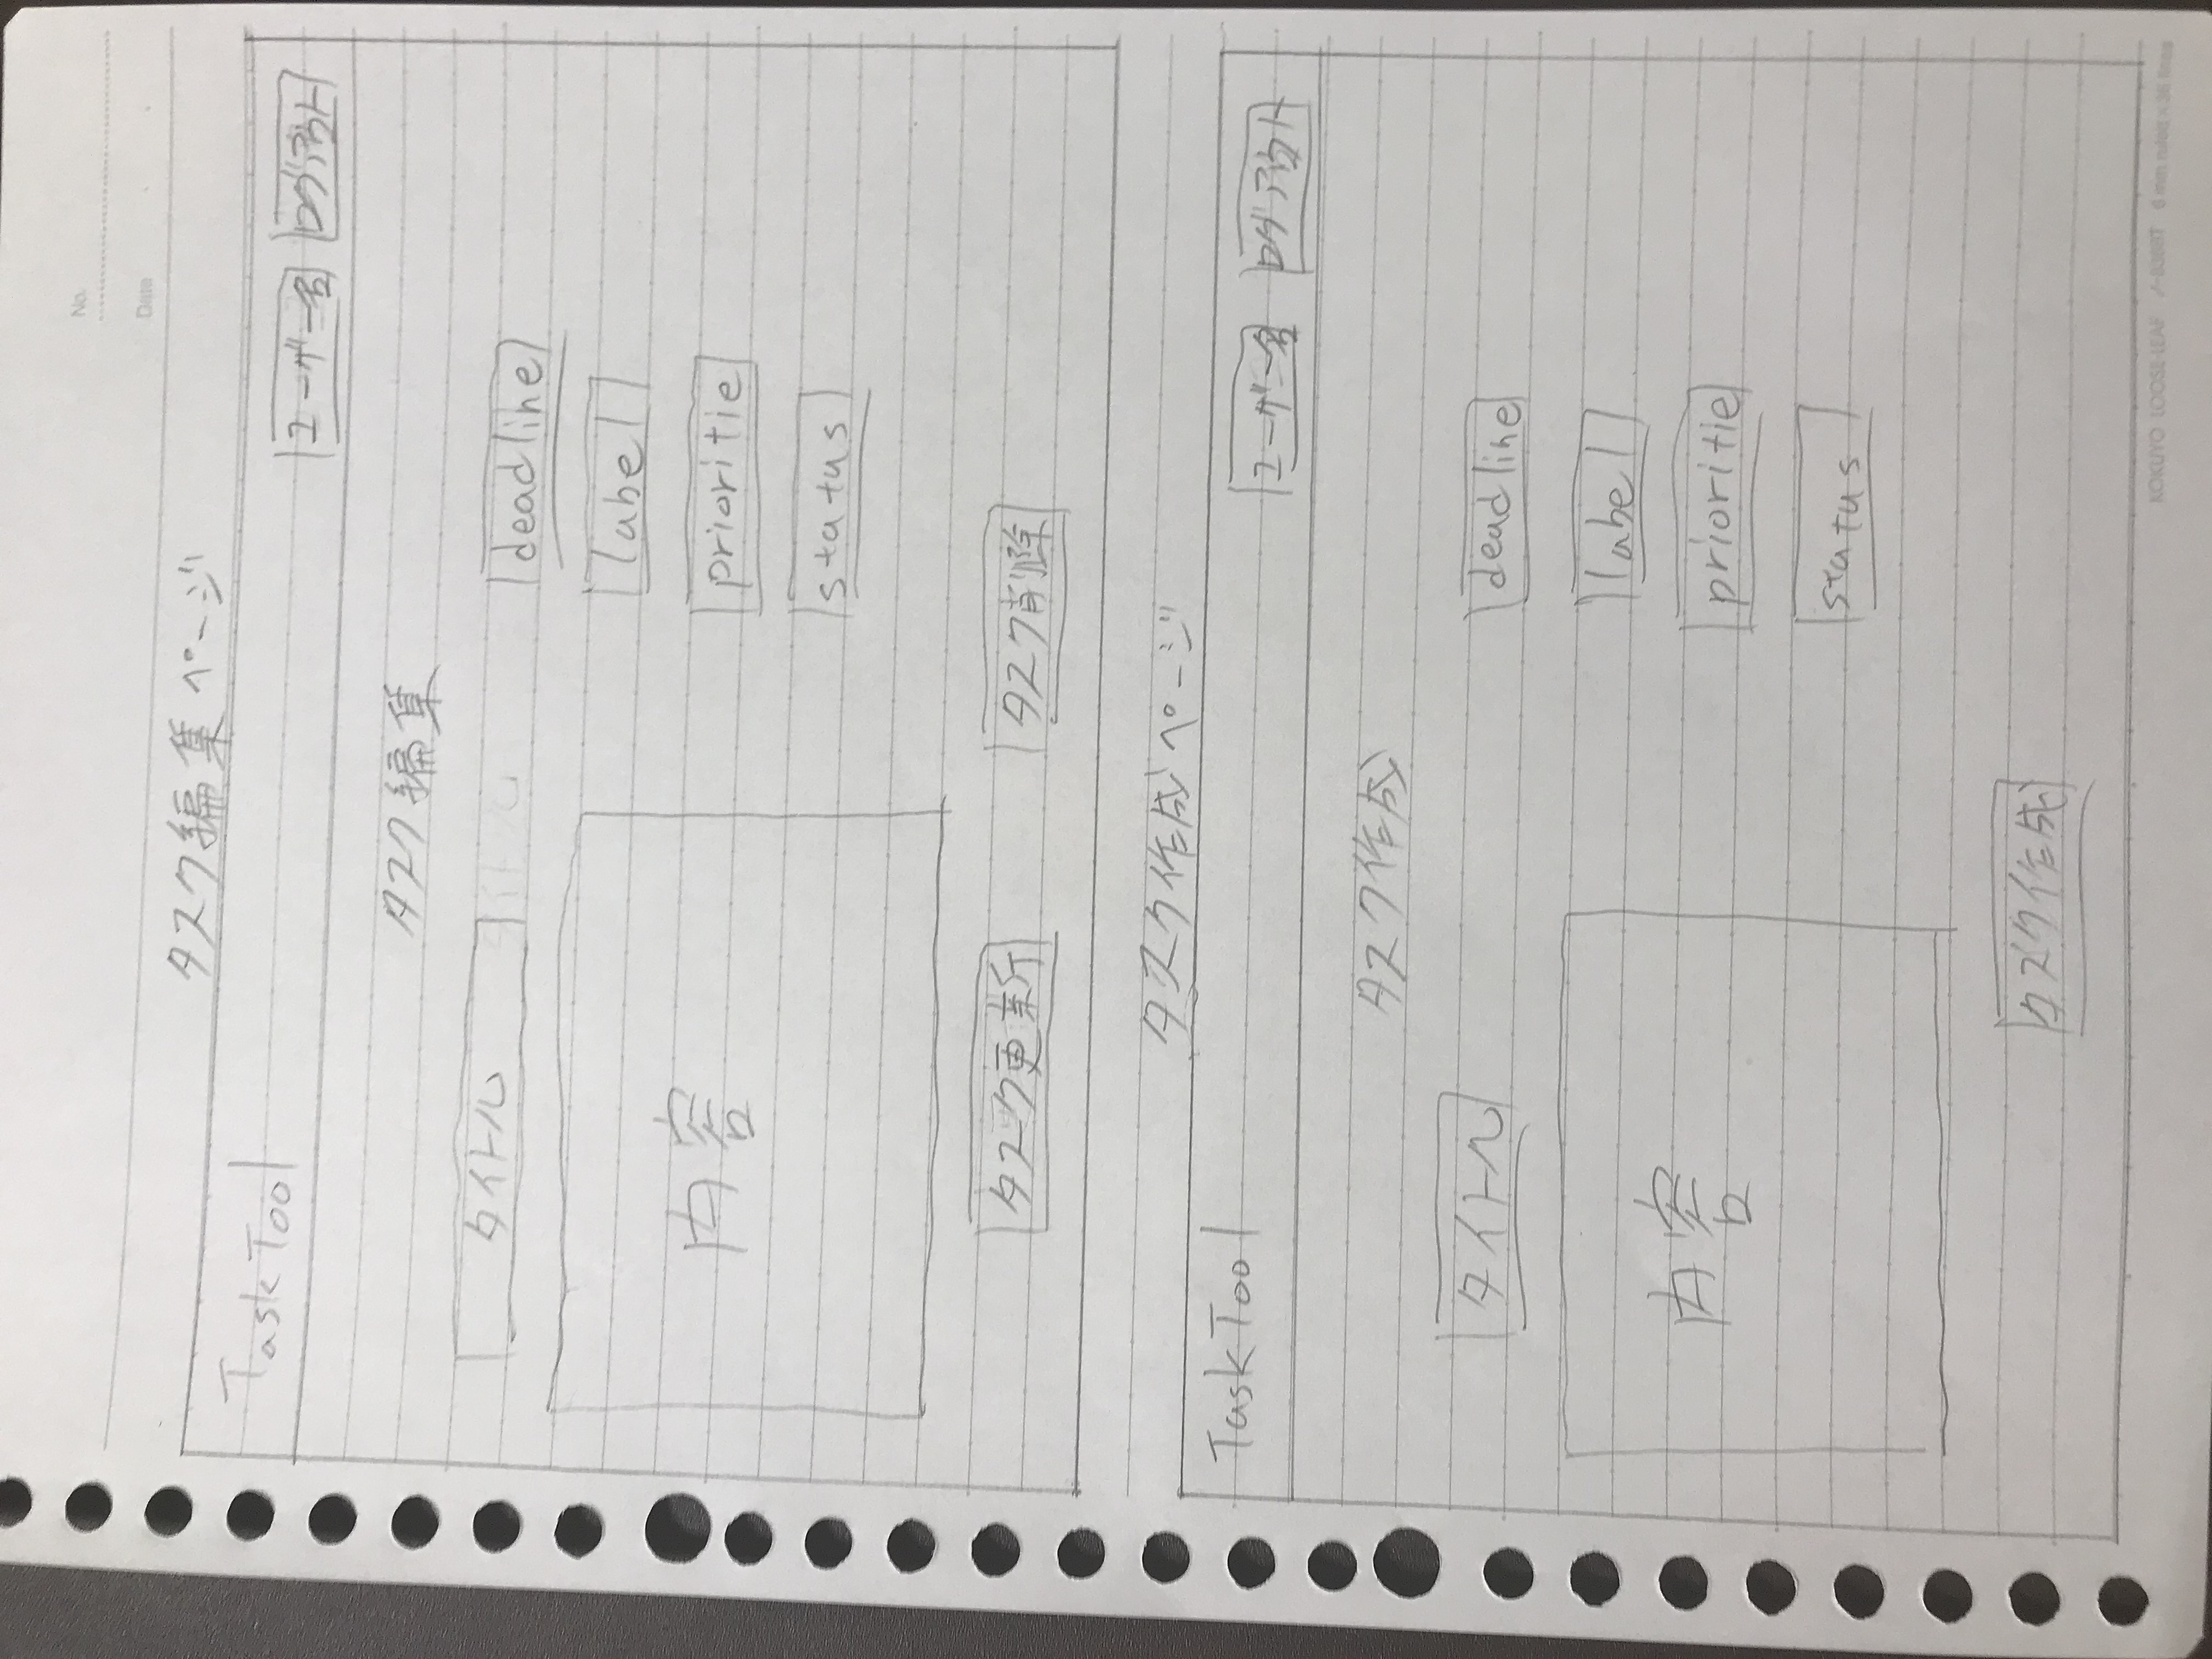 No.
Date
タスク編集ページ
TaskTool ユーザー名 ログアウト
タスク編集
タイトル タイトル deadline
label
内容 prioritie
status
タスク更新 タスク削除
タスク作成ページ
TaskTool ユーザー名 ログアウト
タスク作成
タイトル deadline
label
内容 prioritie
status
タスク作成
KOKUYO LOOSE-LEAF ノ-836BT 6 mm ruled × 36 lines